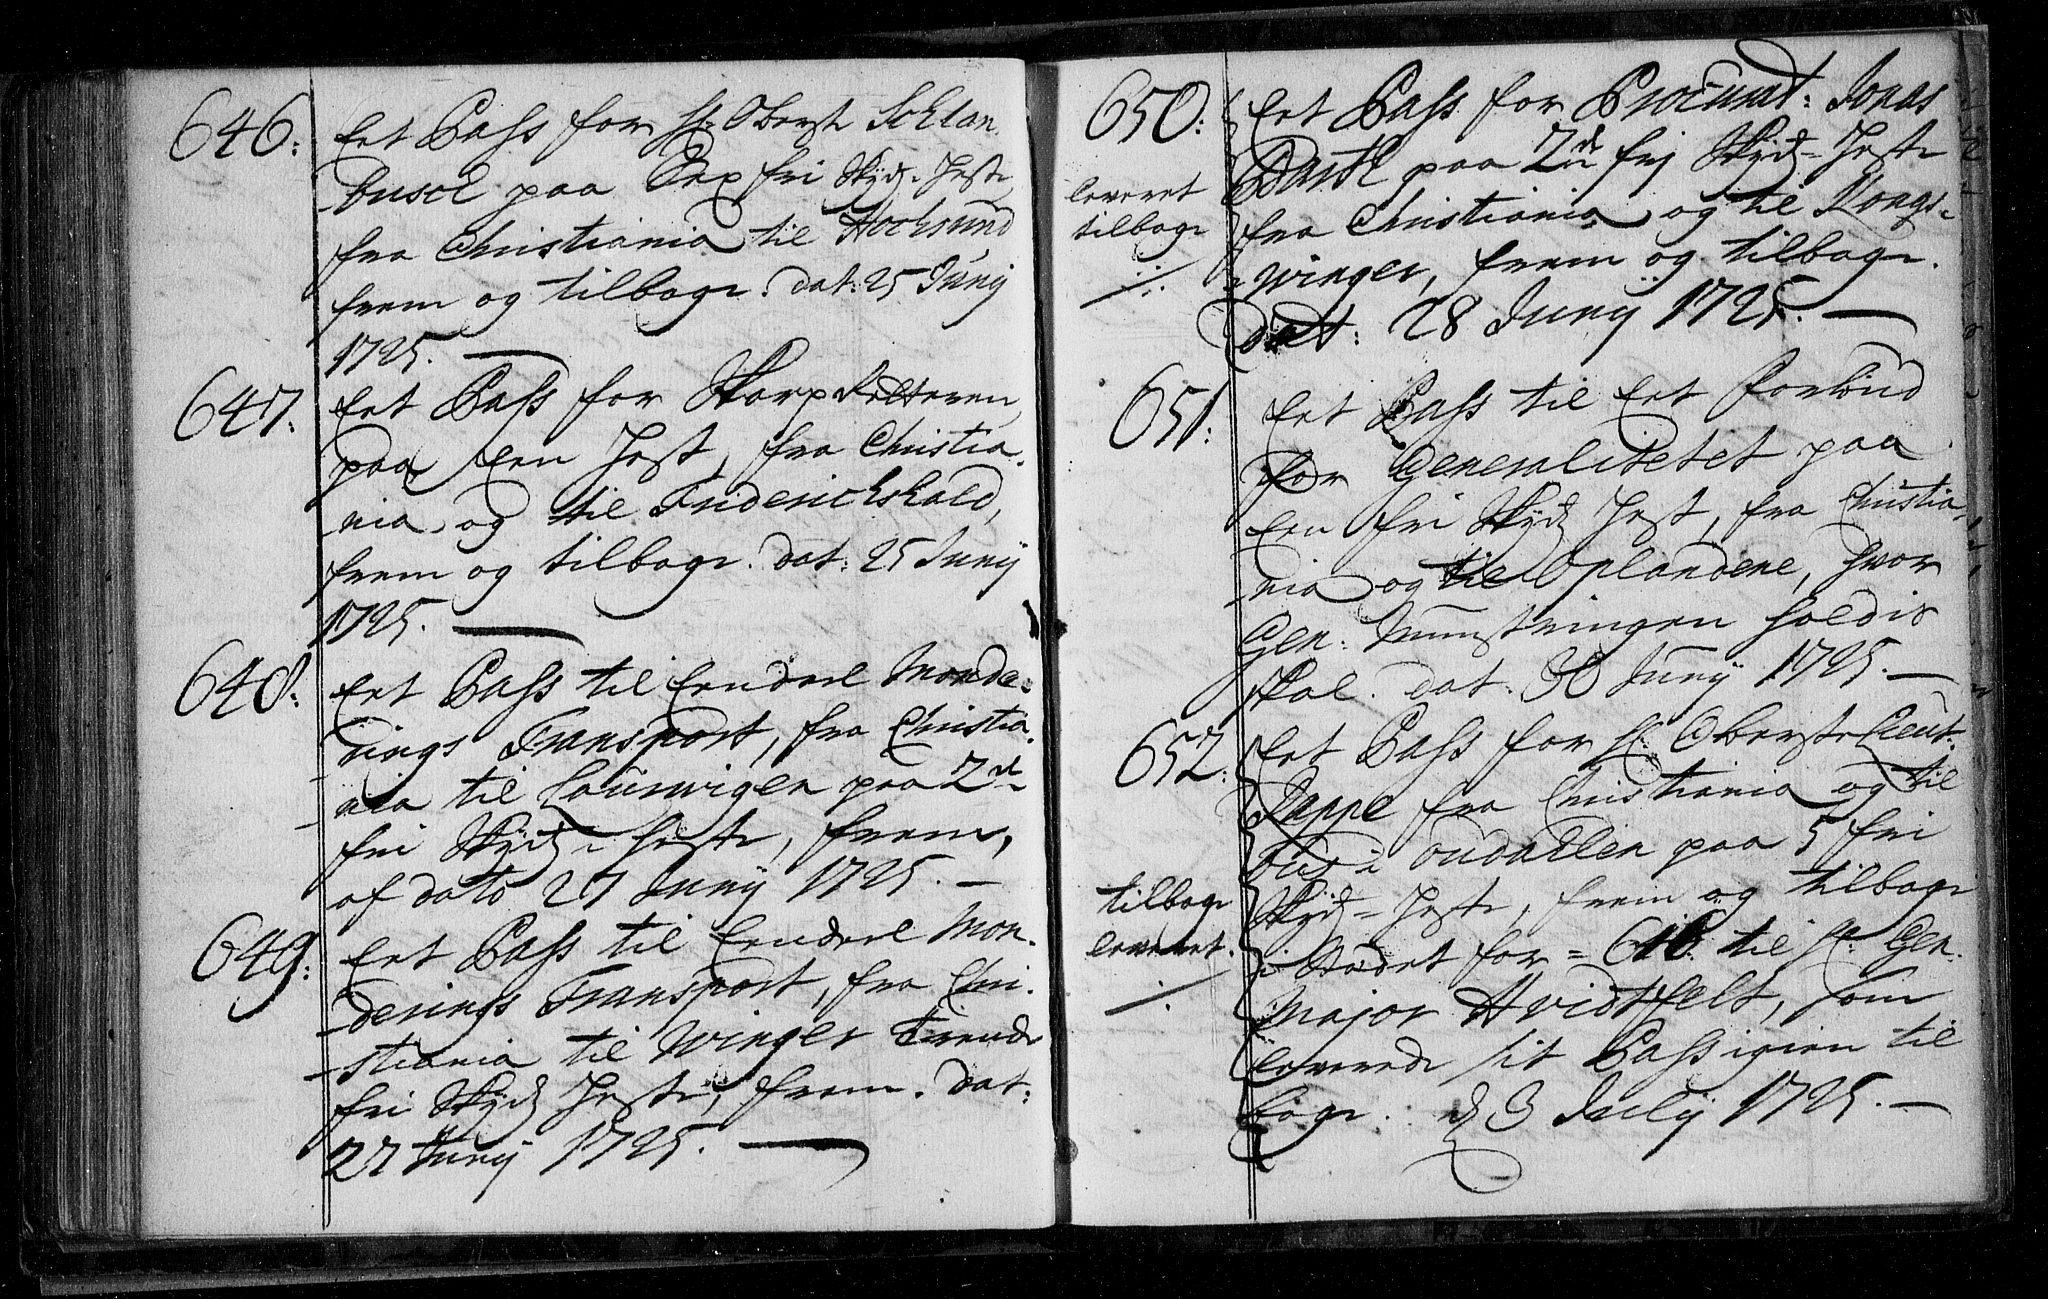 646:
Eet Pass for Hr Oberst Sehlan
busch paa Sex fri Skyds-Heste
fra Christiania til Hochsund
frem og tilbage. dat: 25 Junij
1725.
647:
Eet Pass for Skarpretteren,
paa Een Hest, fra Christia-
nia og til Friderichshald,
frem og tilbage. dat: 25 Junij
1725.
648:
Eet Pass til Eendeel Monde-
rings Transport, fra Christia-
nia til Lourwigen paa 2de
fri Skyds-Heste, frem,
af dato 27 Junij 1725.
649:
Eet Pass til Eendeel Mon-
derings Transport, fra Chri-
stiania til Winger Trende
fri Skyds Heste, frem. dat:
27 Junij 1725.
650:
leveret
tilbage
Eet Pass for Procurat: Jonas
paa 2de frj Skyds-Heste
fra Christiania og til Kongs-
winger, frem og tilbage.
dat: 28 Junij 1725.
651:
Eet Pass til Eet Forbud
for Generalitetet paa
Een fri Skyds Hest, fra Christia-
nia og til Oplandene, hvor
Gen: Munstringen holdis
skal. dat: 30 Junij 1725.
652:
tilbage
leveret.
Eet Pass for Hr: Oberste Lieut:
Rappe fra Christiania og til
Bus i Oudallen paa 5 fri
Skyds-Heste, frem og tilbage
i Stædet for = 618 til Hr: Gen.
Major Hvidtfelt, som
leverede sit Pass igien til
bage. d 3 Julij 1725.